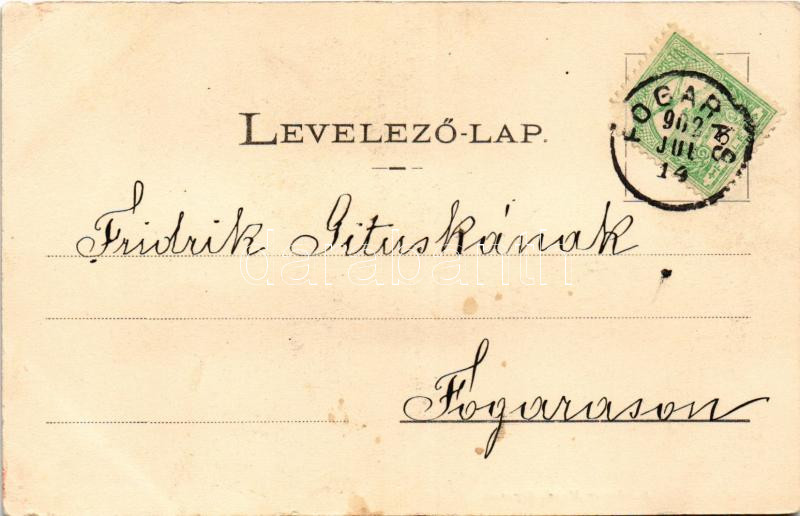 LEVELEZŐ-LAP.
FOGARAS
902
JUL
14
Fridrik Gituskának
darabanth
Fogarason